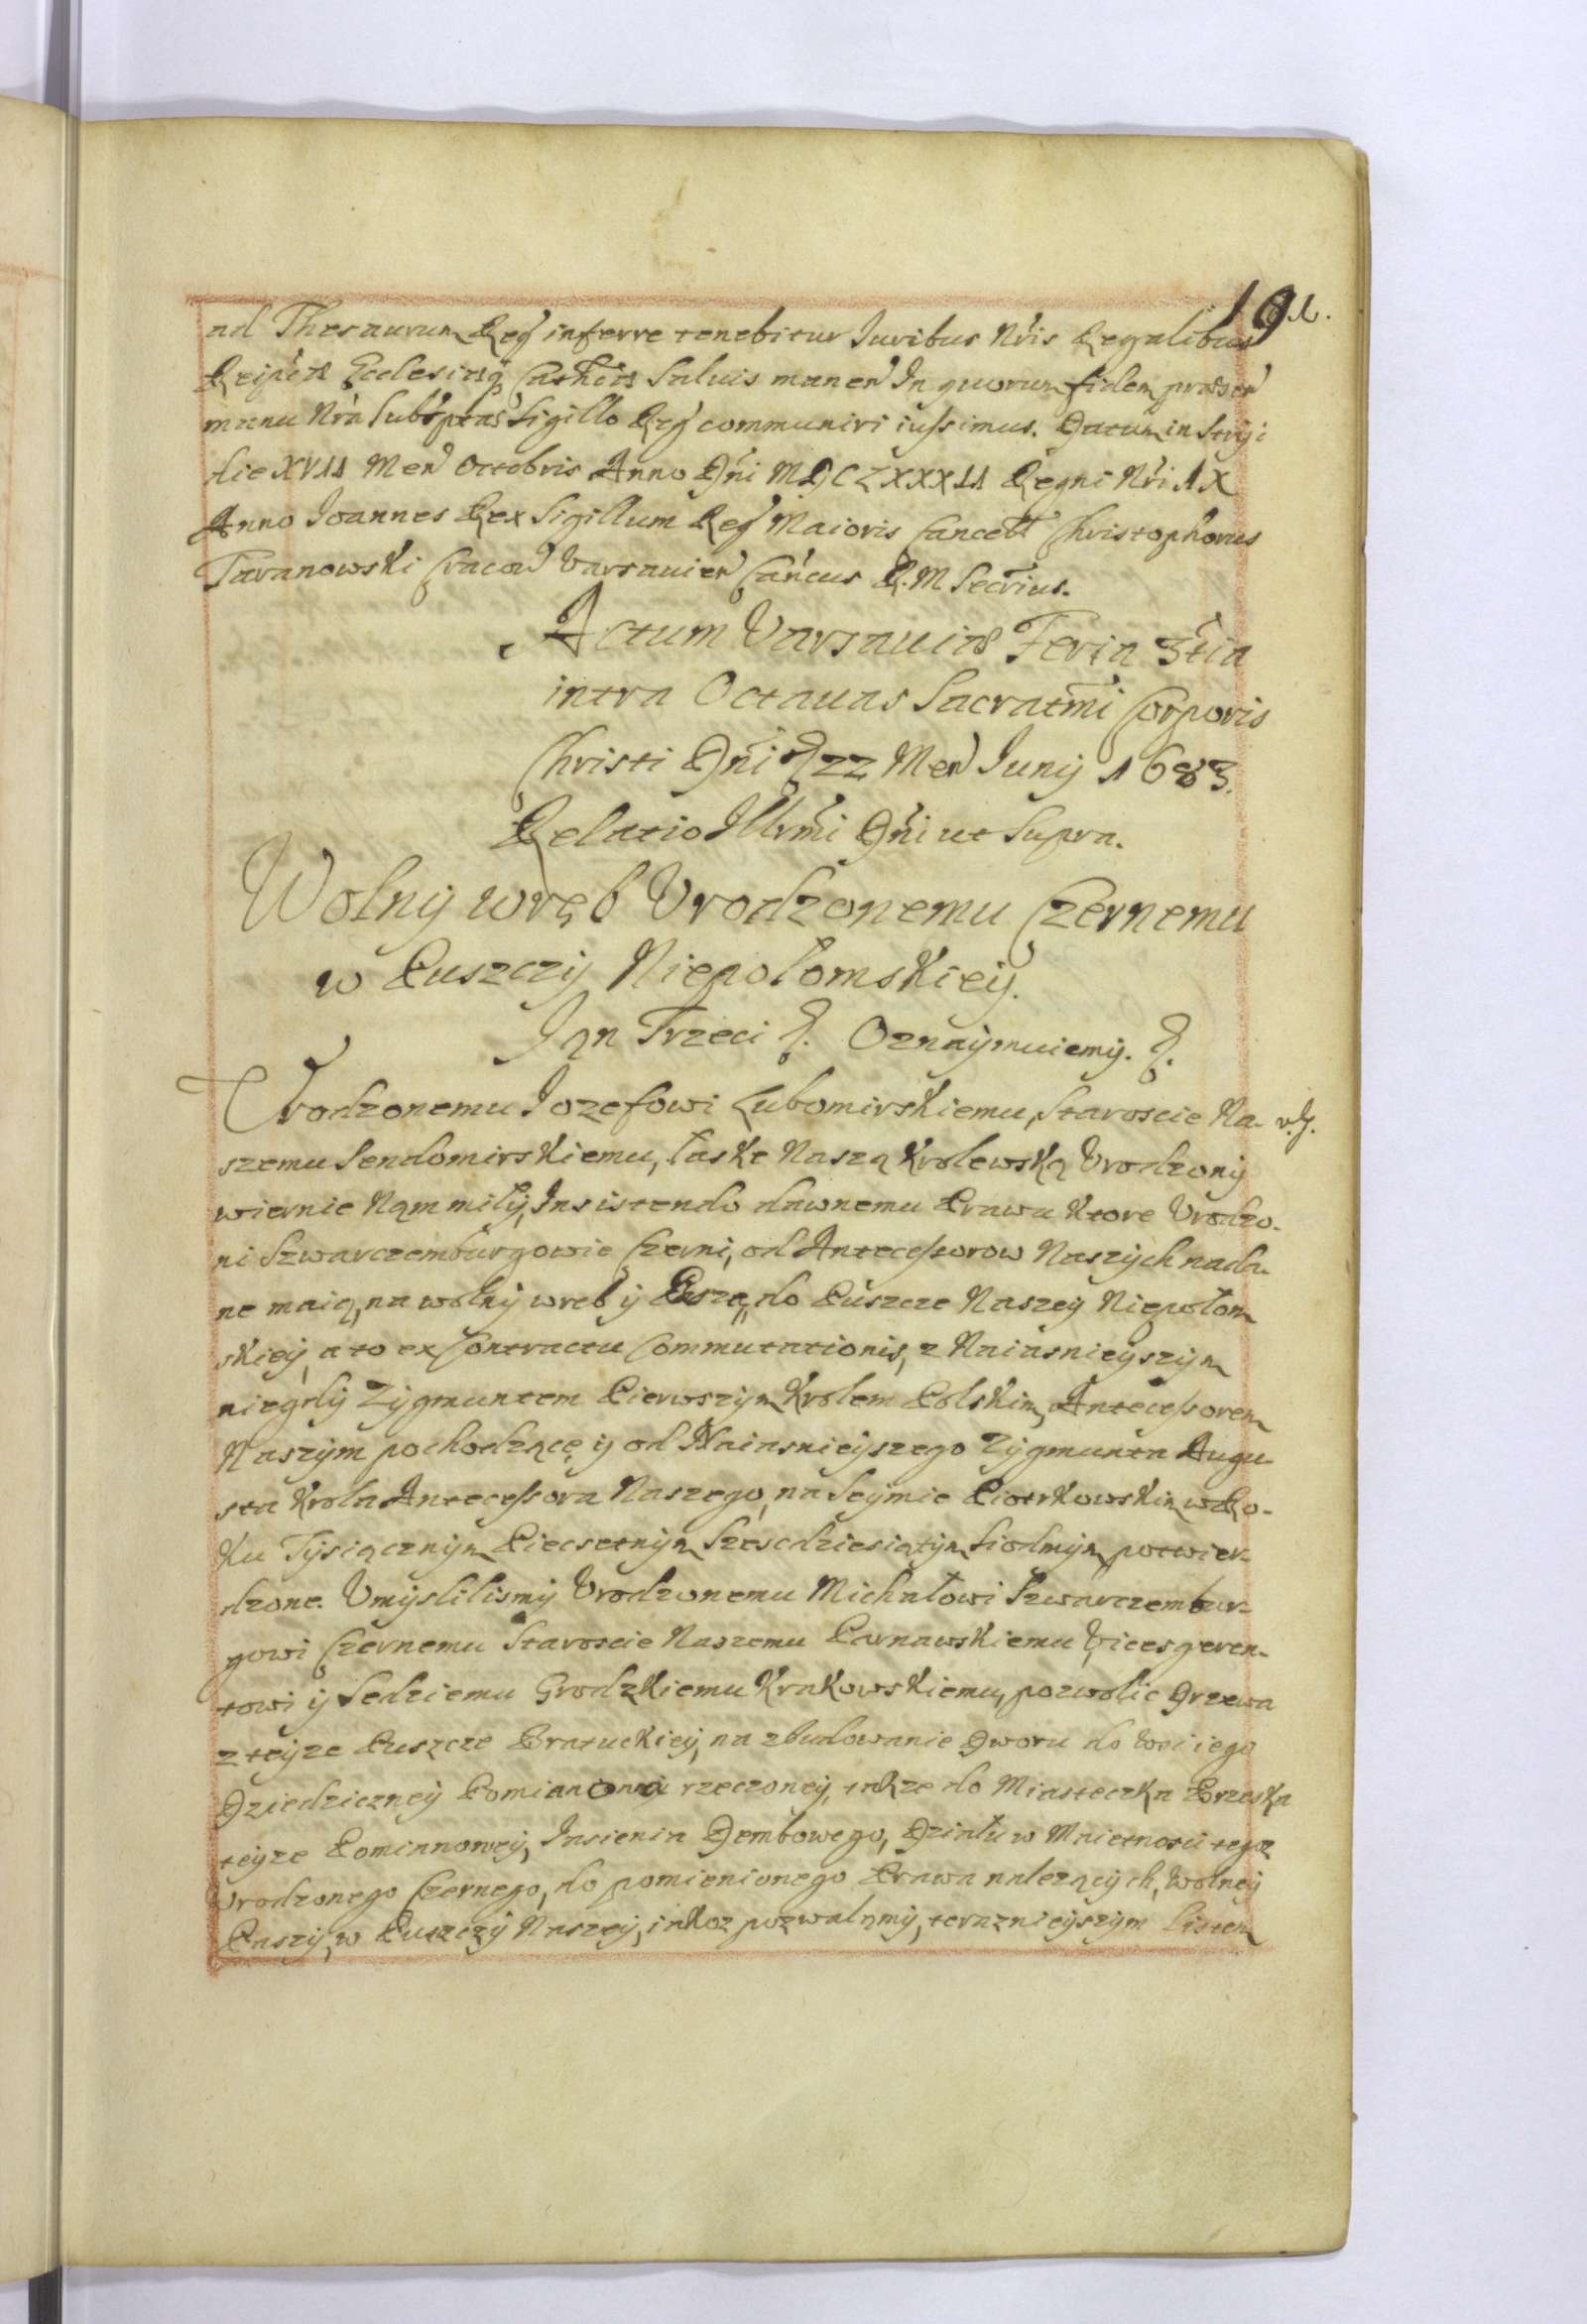 191.
ad Thesaurum Reg inferre tenebitur Iuribus Nris Regalibus
Reipcæ Ecclesiæq Cathcæ Saluis manen In quorum fidem præsen
manu Nra Subscptas Sigillo Reg communiri iussimus. Datum in Stryi
die XVII Men Octobris Anno Dni MDCLXXXII Regni Nri IX
Anno Ioannes Rex Sigillum Reg Maioris Cancell Christophorus
Taranowski Cracou Varsauien Cancus R. M Secrius.
Actum Varsauiæ Feria 3tia
intra Octauas Sacratmi Corporis
Christi Dni D 22 Men Iuny 1683.
Relatio Illrmi Dni ut Supra.
Wolny wręb Vrodzonemu Czernemu
w Puszczy Niepołomskiey.
Jan Trzeci &. Oznaymuiemy. &.
Vrodzonemu Iozefowi Lubomirskiemu, Staroscie Na-
szemu Sendomirskiemu, łaske Naszą Krolewską Vrodzony
wiernie Nam miły, Insistendo dawnemu Prawu Ktore Vrodzo-
ni Szwarczemburgowie Czerni, od Antecessorow Naszych nada-
ne maią, na wolny wreb y Paszą do Puszcze Naszey Niepołom
skiey, a to ex Contractu Commutationis, z Naiasnieyszym
niegdy Zygmuntem Pierwszym Krolem Polskim, Antecessorem
Naszym pochodzące y od Naiasnieyszego Zygmunta Augu-
sta Krola Antecessora Naszego, na Seymie Piotrkowskim w Ro-
ku Tysiącznym Piecsetnym Szescdziesiątym siodmym potwier-
dzone. Vmyslilismy Vrodzonemu Michałowi Szwarczembur-
gowi Czernemu Staroscie Naszemu Parnawskiemu Vicesgeren-
towi y Sedziemu Grodzkiemu Krakowskiemu, pozwolic Drzewa
z teyze Puszcze Bratuckiey, na zbudowanie Dworu do Wsi iego
Dziedziczney Pomianowa rzeczoney, takze do Miasteczka Brzeska
teyze Pomianowey, Insienia Dembowego, Działu w Maietnosci tegoz
Vrodzonego Czernego, do pomienionego Prawa nalezących, Wolney
Paszy, w Puszczy Naszey, iakoz pozwalamy, teraznieyszym Listem